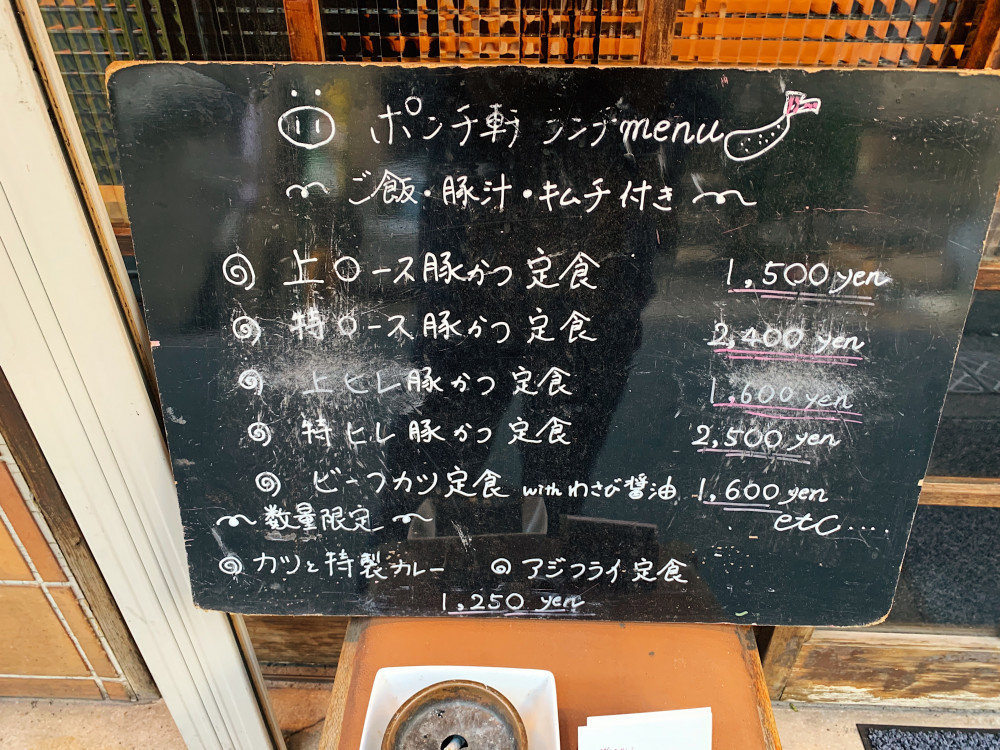 ポンチ軒 ランチmenu
ご飯・豚汁・キムチ付き
上ロース豚かつ定食 1,500yen
特ロース豚かつ定食 2,400 yen
上ヒレ豚かつ定食 1,600 yen
特ヒレ豚かつ定食 2,500 yen
ビーフカツ定食 withわさび醤油 1,600yen
etc....
数量限定
カツと特製カレー アジフライ定食
1,250 yen